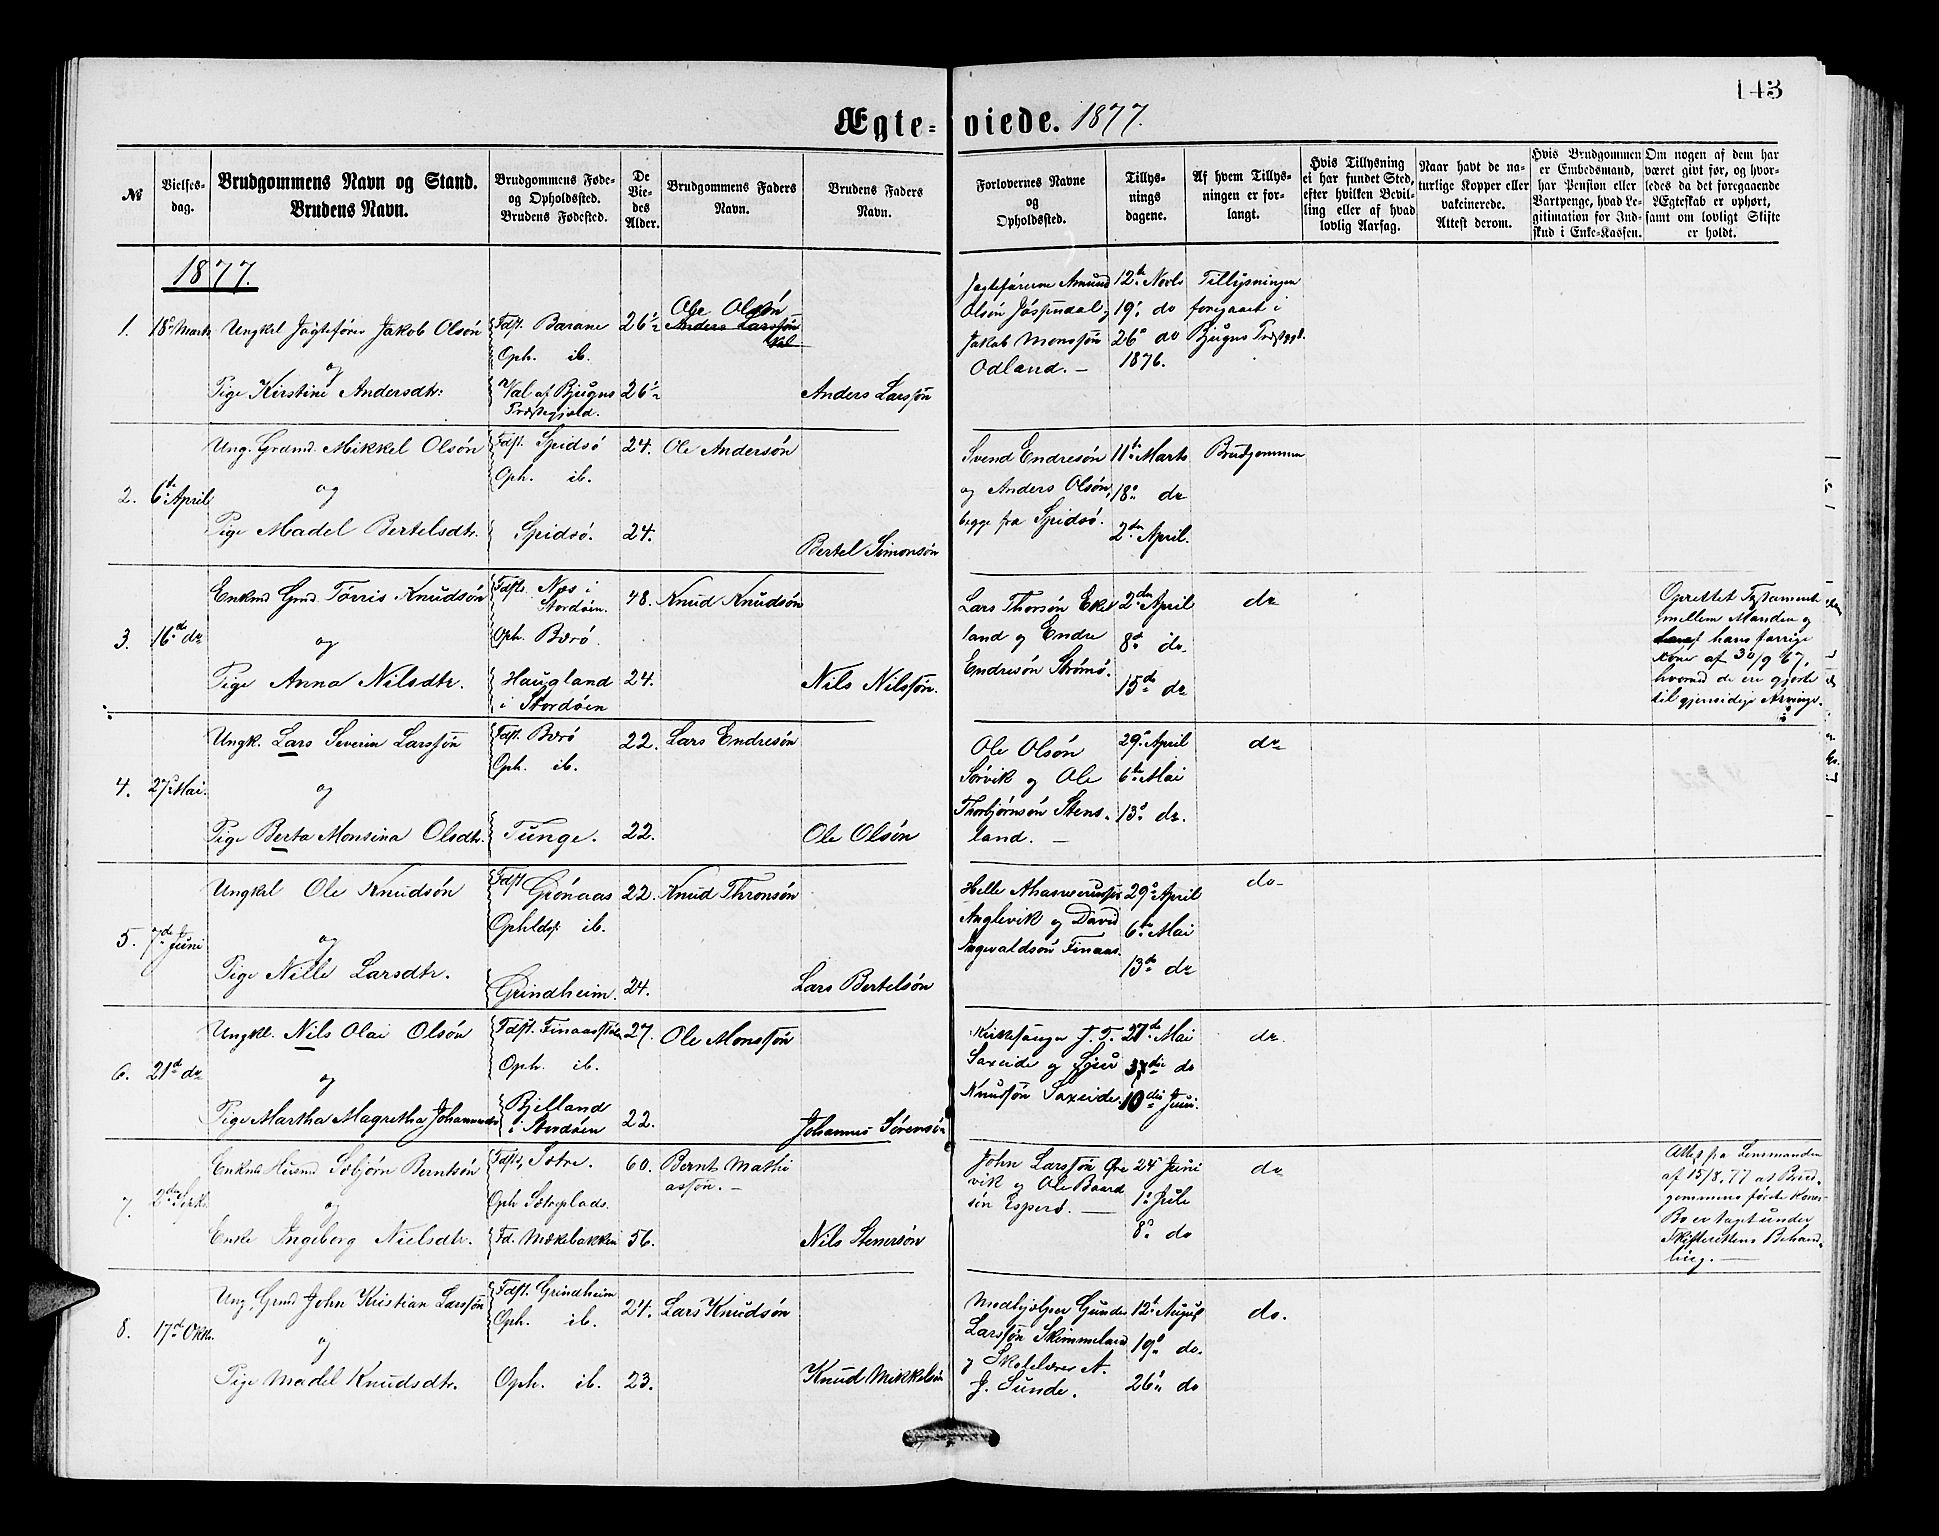 143
Ægte-viede. 1877.
№
Vielses-
dag.
Brudgommens Navn og Stand.
Brudens Navn.
Brudgommens Føde-
og Opholdssted.
Brudens Fødested.
De
Vie-
des
Alder.
Brudgommens Faders
Navn.
Brudens Faders
Navn.
Forlovernes Navne
og
Opholdssted.
Tillys-
nings
dagene.
Af hvem Tillys-
ningen er for-
langt.
Hvis Tillysning
ei har fundet Sted,
efter hvilken Bevil-
ling eller af hvad
lovlig Aarsag.
Naar havt de na-
turlige Kopper eller
vakcinerede.
Attest derom.
Hvis Brudgommen
er Embedsmand,
har Pension eller
Vartpenge, hvad Le-
gitimation for Ind-
skud i Enke-Kassen.
Om nogen af dem har
været givt før, og hvor-
ledes da det foregaaende
Ægteskab er ophørt,
samt om lovligt Skifte
er holdt.
1877.
1. 18de Marts Ungkl Jagtefører Jakob Olsøn
og
Pige Kirstine Andersdtr:
Fdst. Barane
Oph. ib.
Val af Bjugns
Præstegjæld.
26½
26½
Ole Olsøn
Anders Larssøn
Val
Anders Larssøn
Jagteførerne Amund
Olsøn Jøsendal og
Jakob Monssøn
Odland. —
12te Novb
19de do
26de do
1876.
Tillysningen
foregaaet i
Bjugns Præstegjd.
2. 6te April
Ung. Grdmd. Mikkel Olsøn
og
Pige Madel Bertelsdtr.
Fdst. Spidsø
Oph. ib.
Spidsø.
24.
24.
Ole Andersøn
Bertel Simonsøn
Svend Endresøn
og Anders Olsøn,
begge fra Spidsø.
11te Marts
18de do
2den April.
Brudgommen
3. 16de do
Enkmd Grmd. Tørris Knudsøn
og
Pige Anna Nilsdtr.
Fdst. Næs i
Stordøen.
Oph. Børø.
Haugland
i Stordøen
48.
24.
Knud Knudsøn
Nils Nilssøn.
Lars Thorsøn Eke
land og Endre
Endresøn Strømø.
2den April
8de do
15de do
do
Oprettet Testamente
mellem Manden og
hans forrige
Kone af 30/9 67,
hvorved de ere gjorte
til gjensidige Arvinge.
4. 27de Mai.
Ungk. Lars Severin Larssøn
og
Pige Berta Monsina Olsdtr.
Fdst. Børø
Oph. ib.
Tunge.
22.
22.
Lars Endresøn
Ole Olsøn
Ole Olsøn
Sørvik og Ole
Thorbjørnsøn Stens-
land. —
29de April
6te Mai
13de do.
do
5. 7de Juni
Ungkl Ole Knudsøn
og
Pige Nille Larsdtr.
Fdst. Grønaas
Ophldst. ib.
Grindheim.
22.
24.
Knud Thronsøn
Lars Bertelsøn
Helle
Anglevik og David
Ingvaldsøn Finaas.
29de April
6te Mai
13de do
do
6. 21de do
Ungkl. Nils Olai Olsøn
og
Pige Martha Magretha Johannesdtr
Fdst.
Oph. ib.
Bjelland
i Stordøen
27.
22.
Ole Monssøn
Johannes Sørensøn
Kirkesanger J. T.
Saxeide og
Knudsøn Saxeide.
27de Mai
3die do
10de Juni.
do
7.
Enkmd Husmd Sebjørn Berntsøn
og
Enke Ingeborg Nielsdtr.
Fdst. Sætre.
Oph Sætreplads.
Fd. Mækebakken
60.
56.
Bernt Mathi
assøn. —
Nils Stenersøn
John Larssøn Øre
vik og Ole Baard
søn Esperø. —
24de Juni
1ste Jule
8de do
do
Attest fra Lensmanden
af 15/8.77 at Brud-
gommens første Kones
Bo er taget under
Skifterettens Behand-
ling. —
8. 17de Oktb.
Ung. Grmd John Kristian Larssøn
og
Pige Madel Knudsdtr.
Fdst. Grindheim
Oph. ib.
Oph. ib.
24.
23.
Lars Knudsøn
Knud Mikkelsøn
Medhjælper Gunder
Larssøn Skimmeland
og Skolelærer A.
J. Sunde.
12te August
19de do
26de do
do.